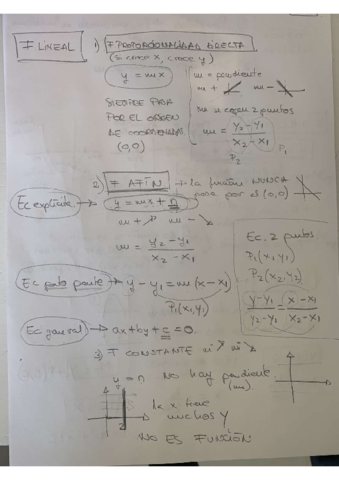 F LINEAL
1) F PROPORCIONALIDAD DIRECTA
(Si crece x, crece y)
y = mx
m = pendiente
m + m -
SIEMPRE PASA
POR EL ORIGEN
DE COORDENADAS
(0,0)
2 puntos
m = y2 - y1 / x2 - x1
P2 P1
2) F AFÍN → la función NUNCA
pasa por el (0,0)
Ec explícita → y = mx + n
m + m -
m = y2 - y1 / x2 - x1
Ec punto pendiente → y - y1 = m (x - x1)
P1(x1, y1)
Ec. 2 puntos
P1(x1, y1)
P2(x2, y2)
y - y1 / y2 - y1 = x - x1 / x2 - x1
Ec general → ax + by + c = 0.
3) F CONSTANTE
y = n NO hay pendiente
(m)
2
la x tiene
muchos y
NO ES FUNCIÓN